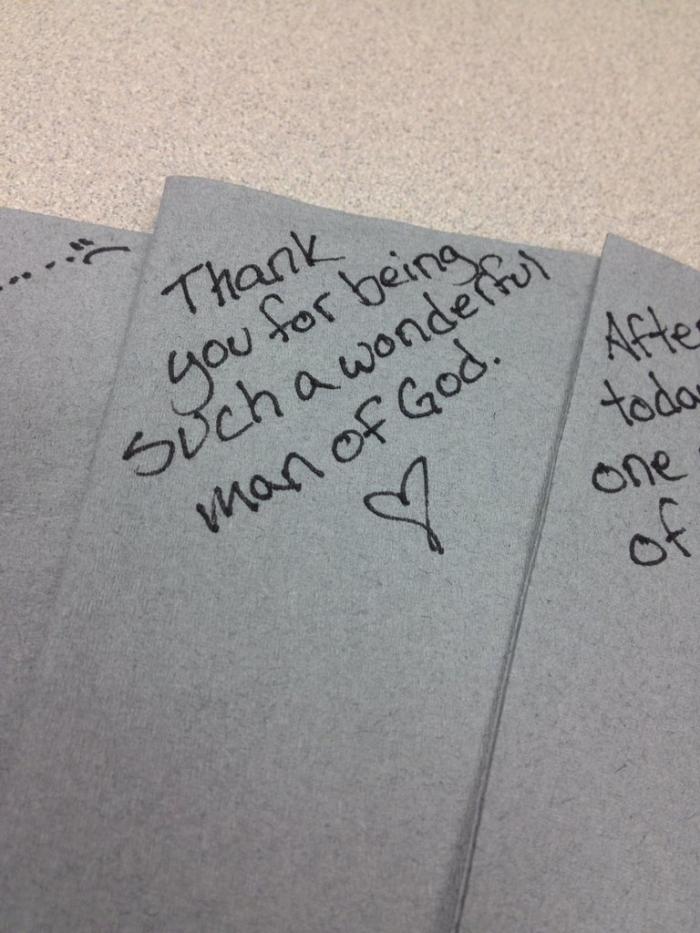 Thank
you for being
such a wonderful
man of God.
toda
one
of